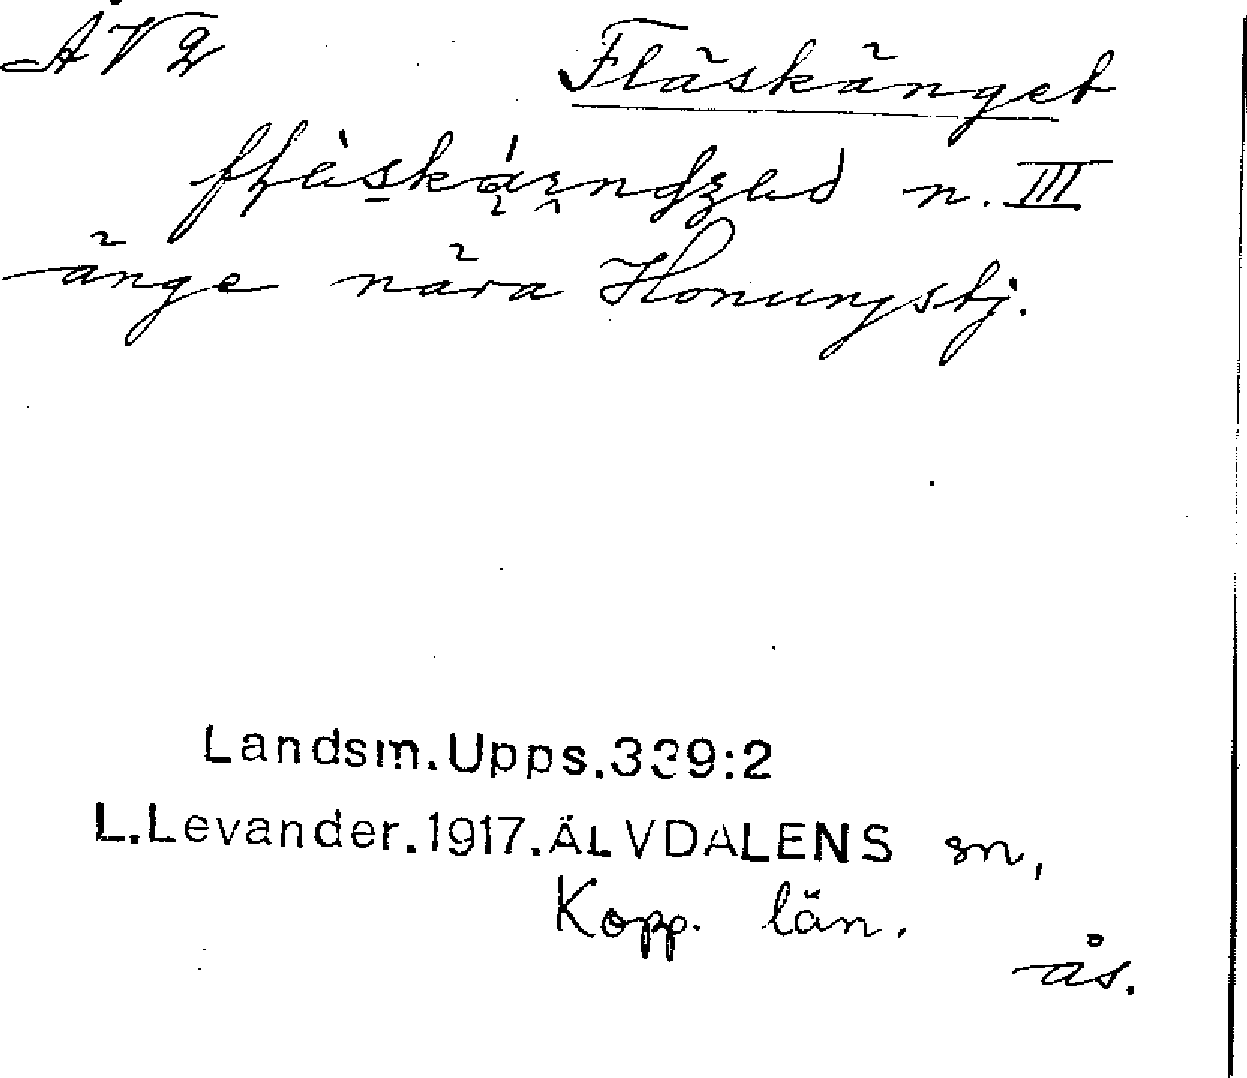 ÅV2 Fläskänget
n. III
änge nära Honungstj.
Landsm.Upps.339:2
L.Levander.1917.ÄLVDALENS sn,
Kopp. län.
ås.